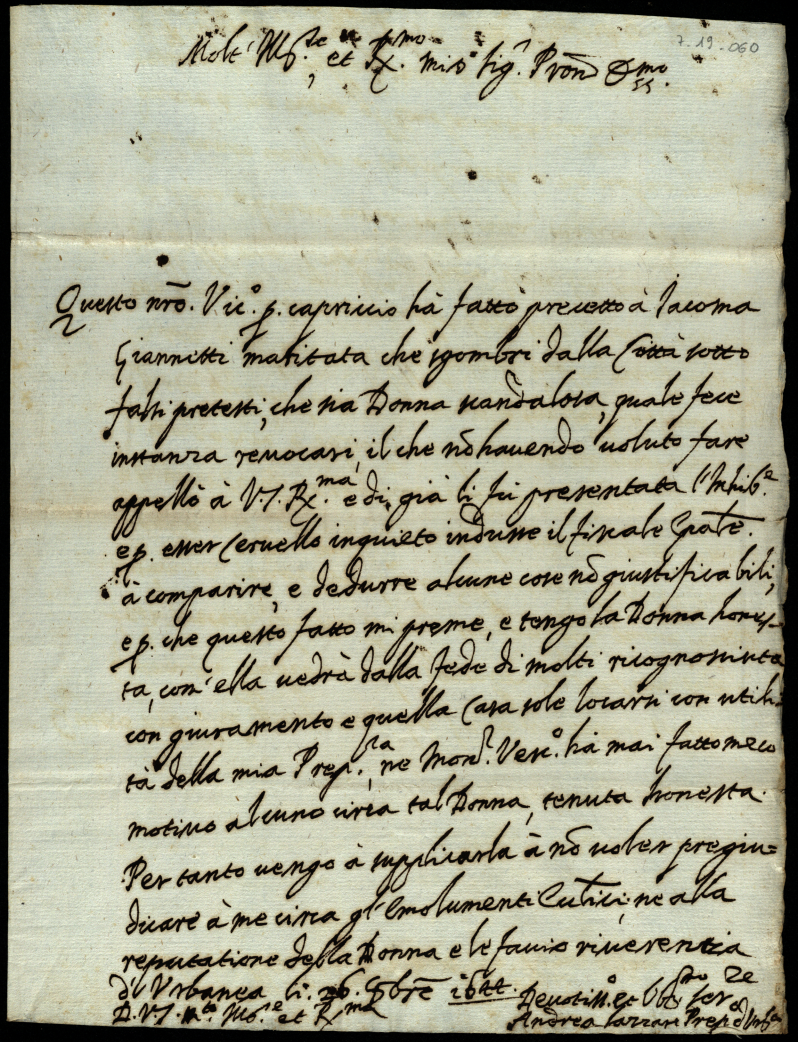 7-19-060
Molt' Ill.re et R.mo mio Sig.r Pron Oss.mo
Questo nro. Vic.o p. capriccio hà fatto precetto à Iacoma
Giannetti maritata che sgombri dalla Città sotto
falsi pretesti, che sia Donna scandalosa, quale fece
instanza revocarsi, il che nõ havendo voluto fare
appellò à V.S. R.ma, e di già li fù presentata l'Inhib.e
e p. esser Cervello inquieto indusse il fiscale
à comparire, e dedurre alcune cose nõ giustificabili,
e p. che questo fatto mi preme, e tengo la Donna hones-
ta, com'ella vedrà dalla fede di molti ricognosciuta
con giuramento e quella Casa sole locarsi con utili-
tà della mia Prep.ra, ne Mons.r Vesc.o hà mai fatto meco
motivo alcuno circa tal Donna, tenuta honesta.
Per tanto vengo à supplicarla à nõ voler pregiu=
dicare à me circa gl'Emolumenti, ne alla
reputatione della Donna e le faccio riverentia
d'Urbanea li. 26. 1644.
D. V.S. m.to Ill.e et R.ma
Devotiss.o et Obl.mo Ser.re
Andrea Lazzari Prep.o d'Urb.a